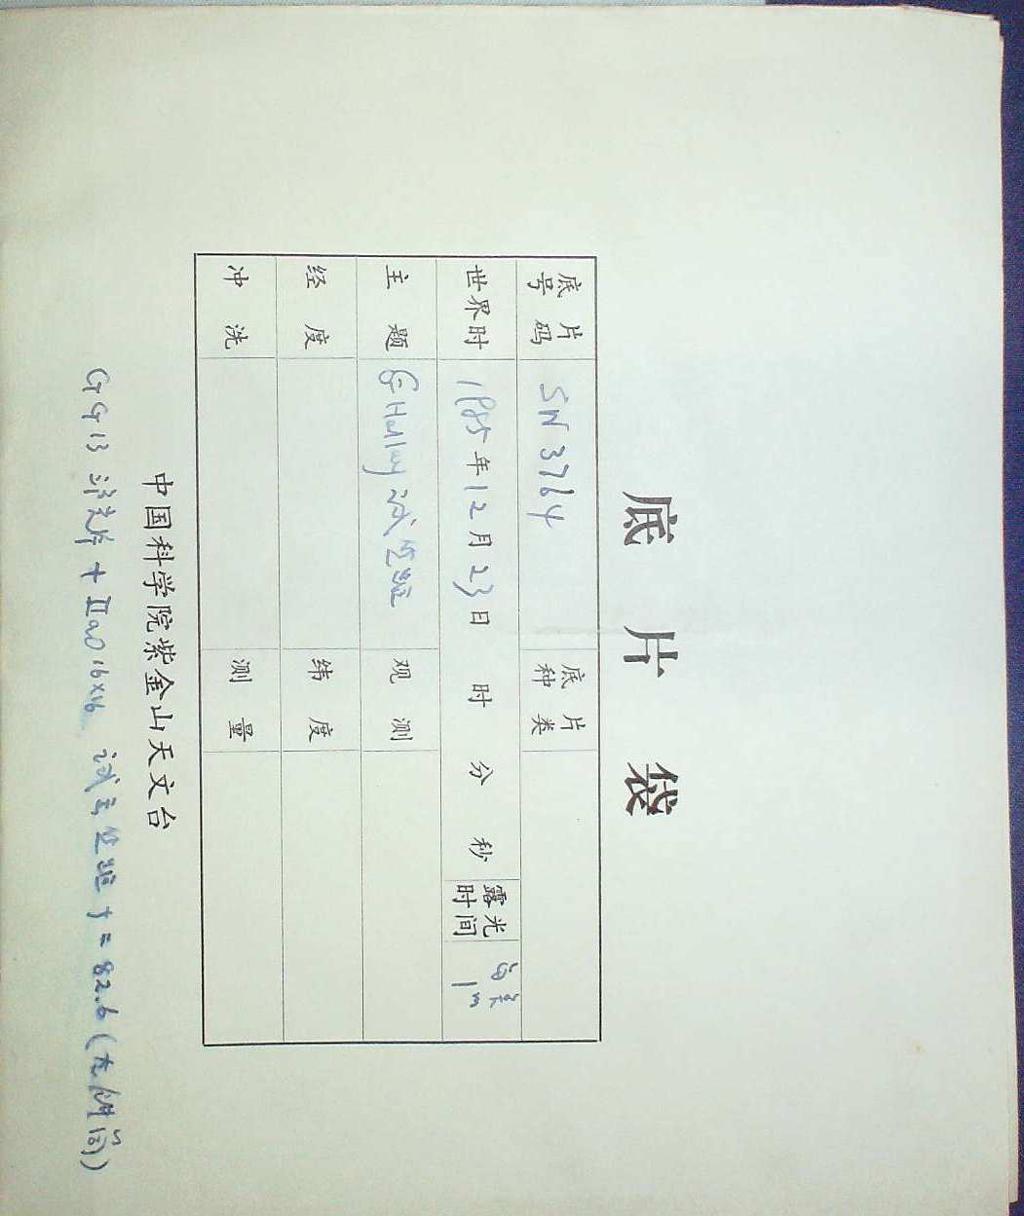 底片袋
底片号码 SN 3764 底片种类
世界时 1985年12月23日 时 分 秒 露光时间 1m
主题 Halley 试 观测
经度 纬度
冲洗 测量
中国科学院紫金山天文台
GG13 滤光片 + IIaO 16×16 试 f = 82.6